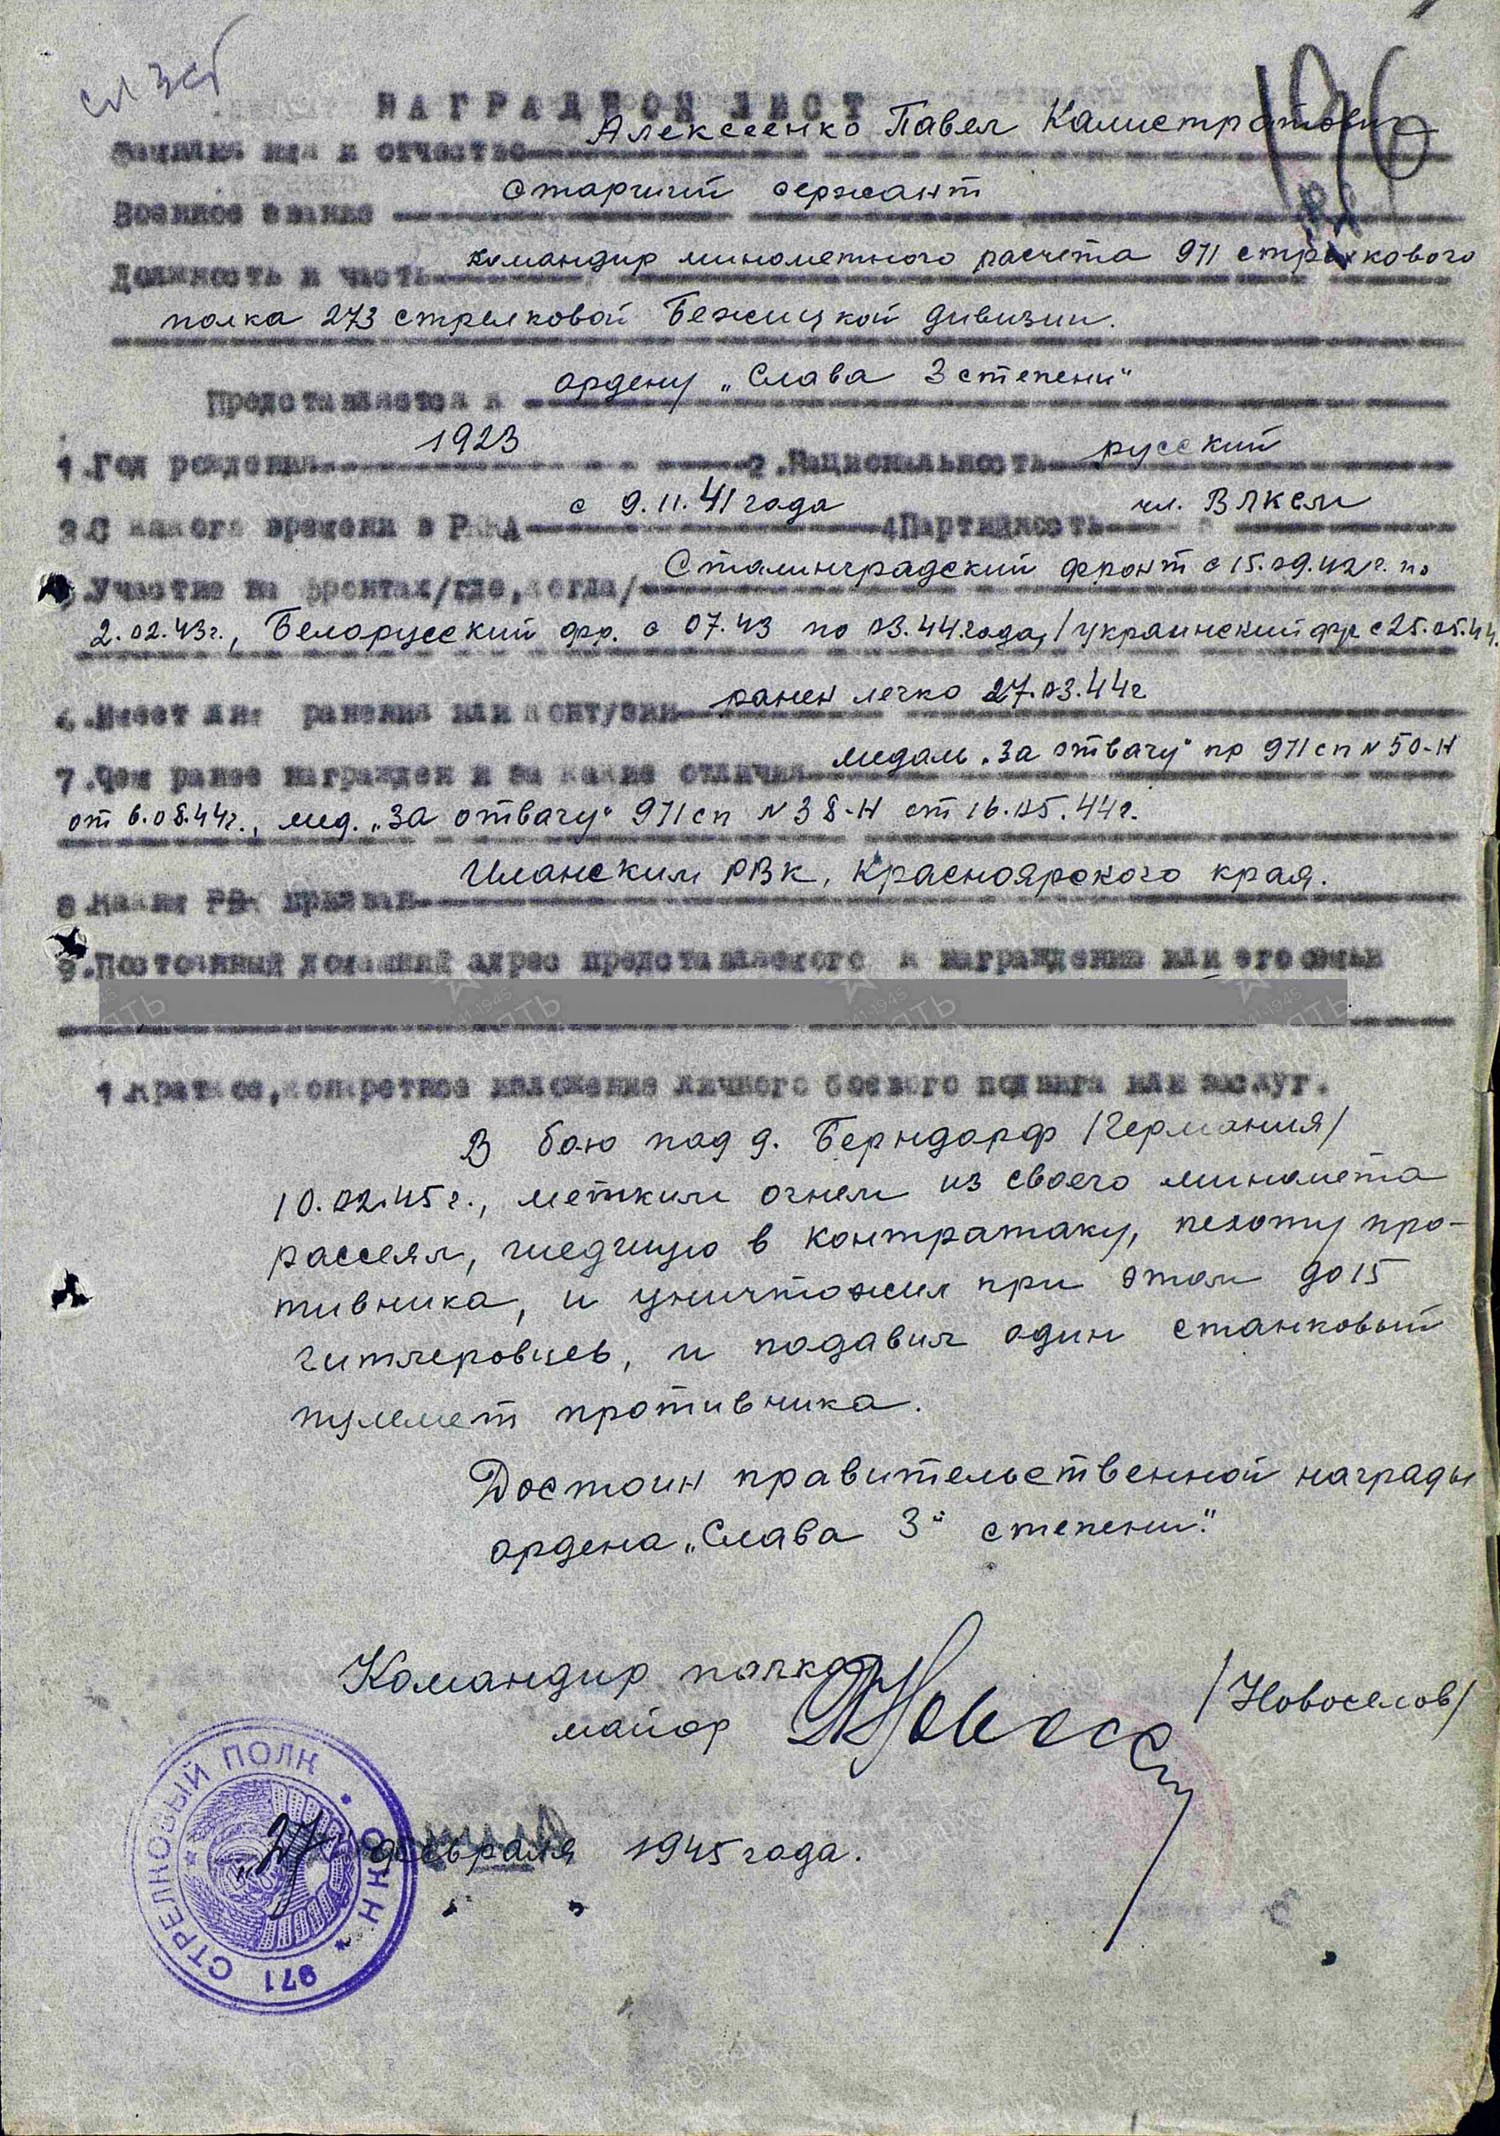 сл 3 ст
196
НАГРАДНОЙ ЛИСТ
Фамилия имя и отчество Алексеенко Павел Калистратович
Военное звание Старший сержант
Должность и часть командир минометного расчета 971 стрелкового
полка 273 стрелковой Бежицкой дивизии.
Представляется к ордену „Слава 3 степени"
1.Год рождения 1923 2.Национальность русский
3.С какого времени в РККА с 9.11.41 года 4Партийность чл. ВЛКСМ
5.Участие на фронтах/где,когда/ Сталинградский фронт с 15.09.42 г. по
2.02.43г., Белорусский фр. с 07.43 по 03.44 года, 1 украинский фр с 25.05.44.
6.Имеет ли ранения или контузии ранен легко 27.03.44г
7.Чем ранее награжден и за какие отличия медаль „За отвагу" пр 971 сп № 50-Н
от 6.08.44г., мед. „За отвагу" 971 сп № 38-Н от 16.05.44г.
8.Каким РВК призван Иланским РВК, Красноярского края.
9.Постоянный домашний адрес представляемого к награждению или его семьи
1.Краткое,конкретное изложение личного боевого подвига или заслуг.
В бою под д. Берндорф /Германия/
10.02.45г., метким огнем из своего миномета
рассеял, шедшую в контратаку, пехоту про-
тивника, и уничтожил при этом до 15
гитлеровцев, и подавил один станковый
пулемет противника.
Достоин правительственной награды
ордена „Слава 3й степени".
Командир полка
майор /Новоселов/
„27" февраля 1945 года.
971 СТРЕЛКОВЫЙ ПОЛК * НКО *